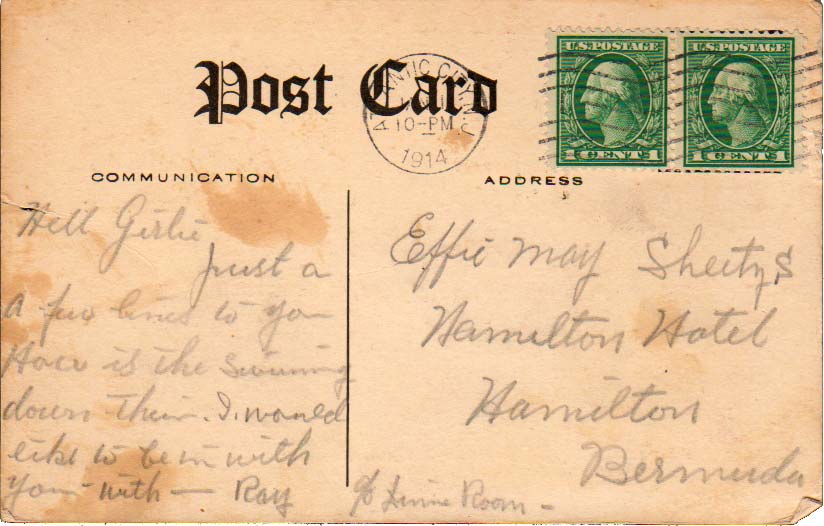 Post Card
ATLANTIC CITY, N.J.
10-PM
1914
U.S.POSTAGE
1 CENT 1
U.S.POSTAGE
1 CENT 1
COMMUNICATION
ADDRESS
Hell Girlie
Just a
a few lines to you
How is the swimming
down their. I. would
like to be in with
you with — Ray
Effie May
Hamilton Hotel
Hamilton
Bermuda
c/o Room -